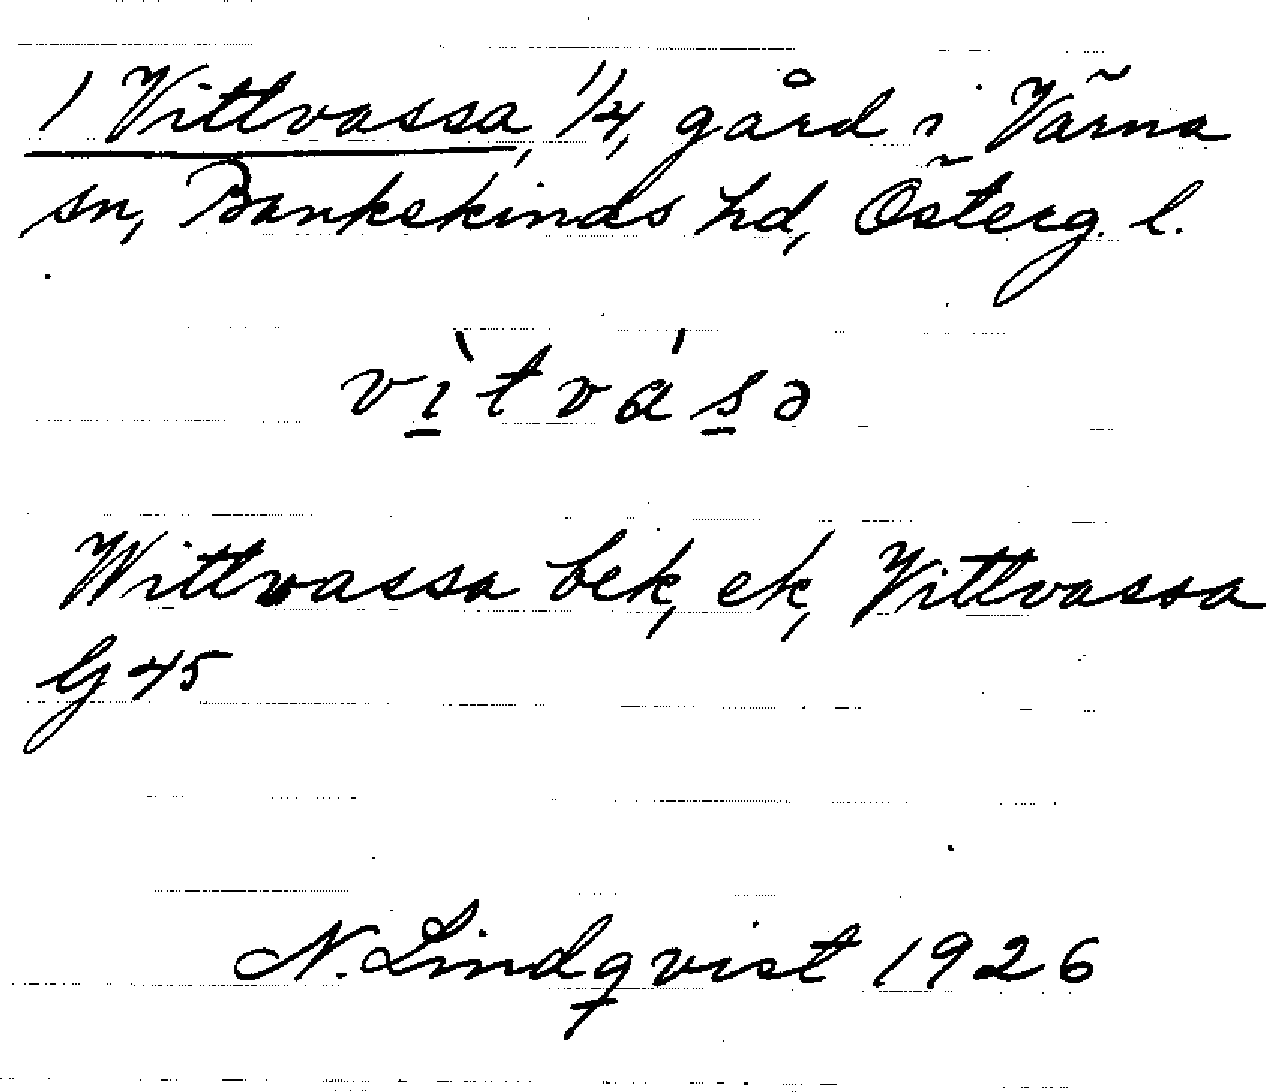 1 Vittvassa, 1/4, gård i Värna
sn, Bankekinds hd, Österg. l.
vì̱tvás̱ə
Wittvassa bek, ek, Vittvassa
G 45
N. Lindqvist 1926